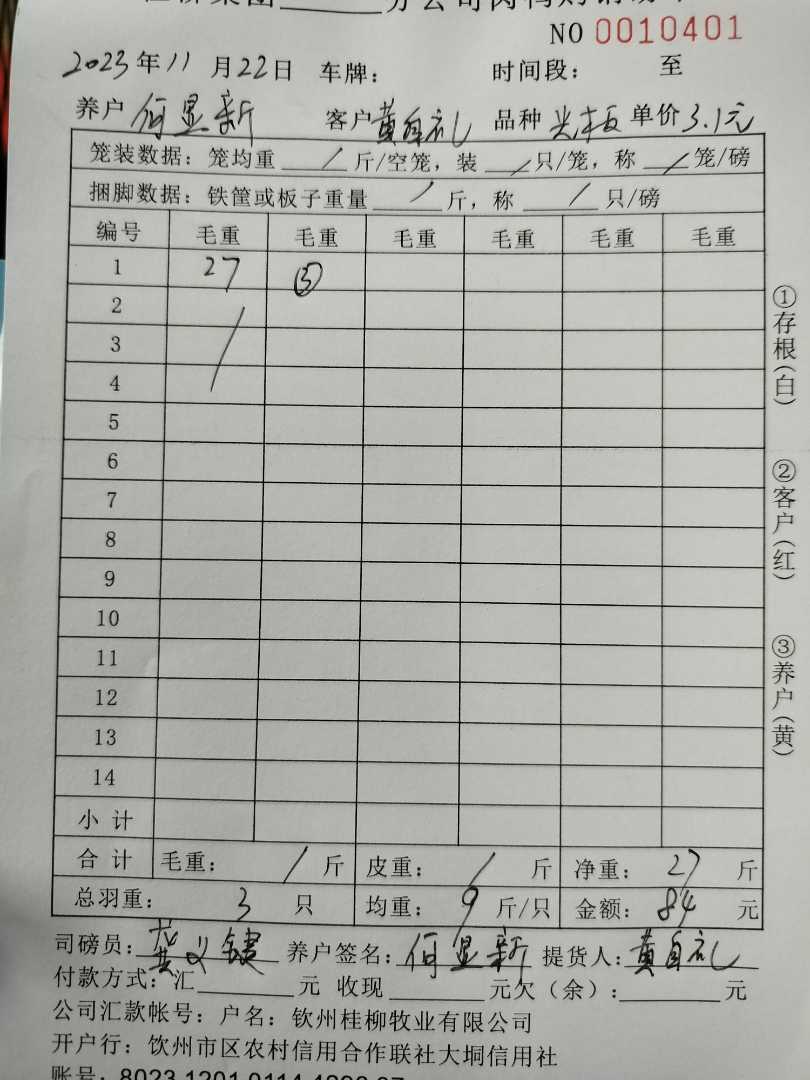 NO 0010401
2023年11月22日 车牌： 时间段： 至
养户 何显新 客户 黄自礼 品种 尖板 单价 3.1元
笼装数据：笼均重 / 斤/空笼，装 / 只/笼，称 / 笼/磅
捆脚数据：铁筐或板子重量 / 斤，称 / 只/磅
编号 毛重 毛重 毛重 毛重 毛重 毛重
1 27 ③
2
3
4
5
6
7
8
9
10
11
12
13
14
小计
合计 毛重： / 斤 皮重： / 斤 净重： 27 斤
总羽重： 3 只 均重： 9 斤/只 金额： 84 元
司磅员： 义键 养户签名：何显新 提货人：黄自礼
付款方式：汇 元 收现 元欠（余）： 元
公司汇款帐号：户名：钦州桂柳牧业有限公司
开户行：钦州市区农村信用合作联社大垌信用社
①存根（白）
②客户（红）
③养户（黄）